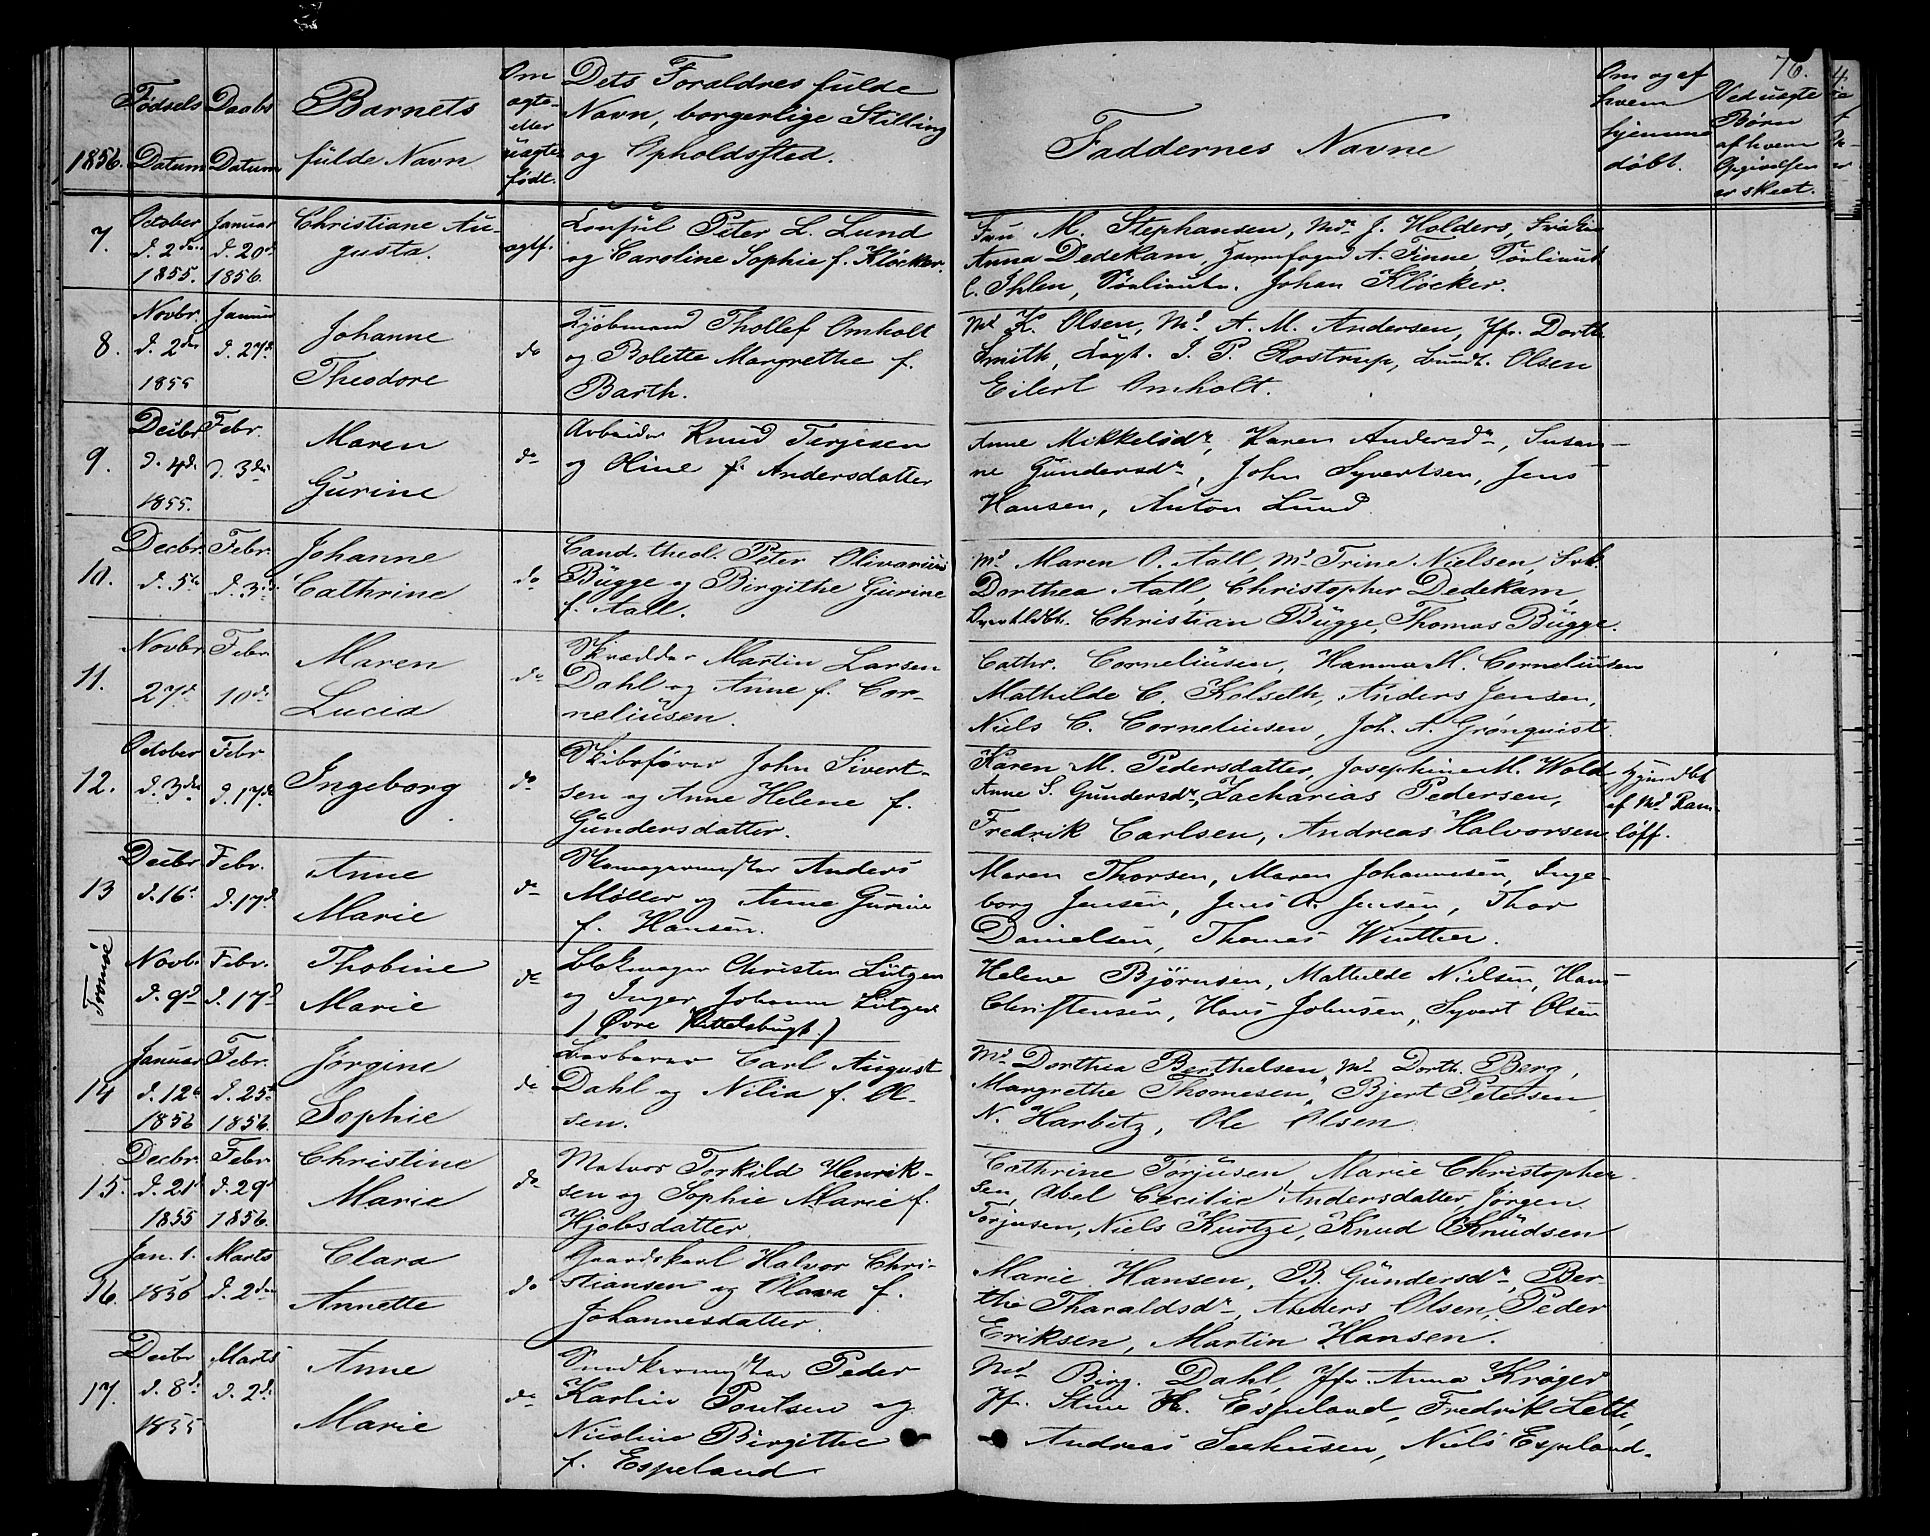 76.
1856.
Fødsels Datum
Daabs Datum
Barnets fulde Navn
Om ægte- eller uægte født.
Dets Foraldres fulde
Navn, borgerlige Stilling
og Opholdssted.
Faddernes Navne
Om og af hvem hjemme døbt.
Ved uægte Børn af hvem Opgivelsen er skeet.
7. October d. 2den 1855. Januar d. 20de 1856. Christiane Augusta. ægtf.
Consul Peter L. Lund
og Caroline Sophie f. Kløcker.
Fru M. Stephansen, Md. J. Holders, Frøken
Anna Dedekam, A. Finne,
C. Ihlen, Johan Kløcker.
8. Novbr. d. 2den 1855 Januar d. 27de Johanne Theodore do
Kjøbmand Thollef Omholt
og Bolette Margrethe f.
Barth.
Md. K. Olsen, Md. A. M. Andersen, Jfr. Dorth.
Smith, J. P. Rostrup, Olsen
Eilert Omholt.
9. Decbr d. 4de 1855. Febr. d. 3die Maren Gurine do
Arbeider Knud Terjesen
og Oline f. Andersdatter
Anne Mikkelsdr, Karen Andersdr, Susan-
ne Gundersdr, John Syvertsen, Jens
Hansen, Anton Lund
10. Decbr. d. 5te Febr. d. 3die Johanne Cathrine do
Cand. theol. Peter Olivarius
Bügge og Birgithe Gurine
f. Aall.
Md. Maren O. Aall, Md. Trine Nielsen, Frk.
Dorthea Aall, Christopher Dedekam,
Christian Bügge, Thomas Bügge.
11. Novbr 27de Febr 10de Maren Lucia do
Skrædder Martin Larsen
Dahl og Anne f. Cor-
neliüsen.
Cathr. Corneliüsen, Hanna M. Corneliusen
Mathilde C. Kolseth, Anders Jensen,
Niels C. Corneliusen, Joh. A. Grønquist.
12. October d. 3die Febr d. 17de Ingeborg do
Skibsfører John Sivert-
sen og Anne Helene f.
Gündersdatter.
Karen M. Pedersdatter, Josephine M. Wold,
Anne S. Gundersdr, Zacharias Pedersen,
Fredrik Carlsen, Andreas Halvorsen
Hjemdbt af Md. Ramløff.
13 Decbr d. 16de Febr. d. 17de Anne Marie do
Skomagermester Anders
Møller og Anne Gurine
f. Hansen.
Maren Thorsen, Maren Johannesen, Inge-
borg Jensen, Jens A. Jensen, Thor
Danielsen, Thomas Winther.
Tromøe Novbr. d. 9de Febr. d. 17de Thobine Marie do
Blokmager Christen Lützen
og Inger Johanne Lützen
(Øvre Kittelsbugt.)
Helene Bjørnsen, Mathilde Nielsen, Hans
Christensen, Hans Johnsen, Syvert Olsen
14 Januar d. 12te 1856 Febr. d. 25de 1856. Jørgine Sophie do
Carl August
Dahl og Nilia f. Ol-
sen.
Md. Dorthea Berthelsen, Md. Dorth. Berg,
Margrethe Thomesen, Bjert Petersen
N. Harbitz, Ole Olsen
15. Decbr. d. 21de 1855 Febr d. 29de 1856. Christine Marie do
Matros Torkild Henrik-
sen og Sophie Marie f.
Hjobsdatter
Cathrine Torjusen, Marie Christopher-
sen, Abel Cecilie Andersdatter, Jørgen
Torjusen, Niels Kurtze, Knud Knudsen
16. Jan. 1. 1856 Marts d. 2den Clara Annette do
Gaardskarl Halvor Chri-
stiansen og Olava f.
Johannesdatter.
Marie Hansen, B. Gündersdr, Ber-
the Tharaldsdr, Anders Olsen, Peder
Eriksen, Martin Hansen.
17. Decbr d. 8de 1855 Marts d. 2de Anne Marie do
Peder
Karlin Poulsen og
Nicoline Birgithe
f. Espeland
Md. Birg. Dahl, Jfr. Anna Krøger
Jf. Stine H. Espeland, Fredrik Lette,
Andreas Seehusen, Niels Espeland.